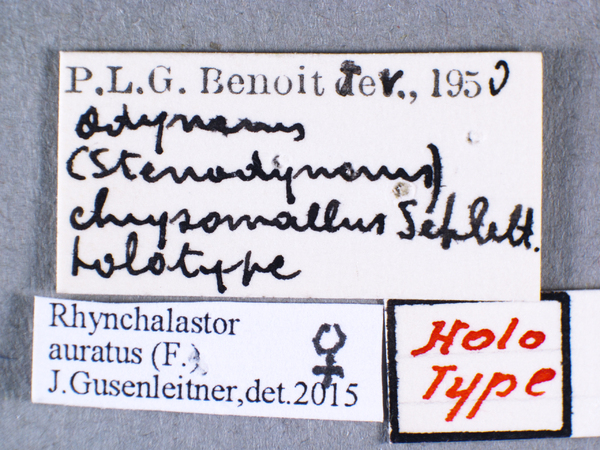 P.L.G. Benoit rev., 1950
Odynerus
(Stenodynerus)
chrysomallus Schlett.
holotype
Rhynchalastor
auratus (F.) ♀
J.Gusenleitner,det.2015
Holo
Type